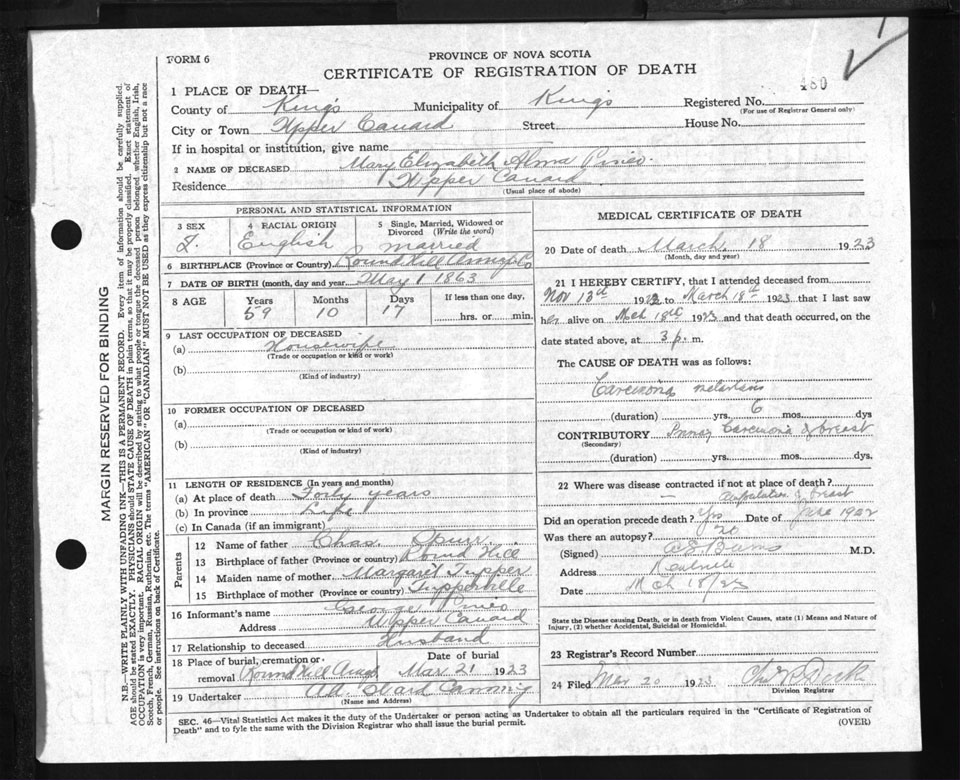 FORM 6
PROVINCE OF NOVA SCOTIA
CERTIFICATE OF REGISTRATION OF DEATH
480
1 PLACE OF DEATH—
County of Kings Municipality of Kings Registered No.
(For use of Registrar General only)
City or Town Upper Canard Street House No.
If in hospital or institution, give name
2 NAME OF DECEASED Mary Elizabeth Alma Pineo.
Residence Upper Canard
(Usual place of abode)
PERSONAL AND STATISTICAL INFORMATION
3 SEX 4 RACIAL ORIGIN 5 Single, Married, Widowed or Divorced (Write the word)
F. English married
6 BIRTHPLACE (Province or Country) Round Hill Annap. Co
7 DATE OF BIRTH (month, day and year) May 1 1863
8 AGE Years Months Days If less than one day,
59 10 17 hrs. or min.
9 LAST OCCUPATION OF DECEASED
(a) Housewife
(Trade or occupation or kind or work)
(b)
(Kind of industry)
10 FORMER OCCUPATION OF DECEASED
(a)
(Trade or occupation or kind of work)
(b)
(Kind of industry)
11 LENGTH OF RESIDENCE (In years and months)
(a) At place of death Forty years
(b) In province Life
(c) In Canada (if an immigrant)
Parents
12 Name of father Chas. Spurr
13 Birthplace of father (Province or country) Round Hill
14 Maiden name of mother Margaret Tupper
15 Birthplace of mother (Province or country) Tupperville
16 Informant's name George Pineo
Address Upper Canard
17 Relationship to deceased Husband
18 Place of burial, cremation or removal Round Hill Date of burial Mar 21 1923
19 Undertaker Canning
(Name and Address)
MEDICAL CERTIFICATE OF DEATH
20 Date of death March 18 1923
(Month, day and year)
21 I HEREBY CERTIFY, that I attended deceased from
Nov 13th 1922 to March 18th 1923 that I last saw
her alive on Mch 18th 1923 and that death occurred, on the
date stated above, at 3 p. m.
The CAUSE OF DEATH was as follows:
Carcinoma
(duration) yrs. 6 mos. dys
CONTRIBUTORY Carcinoma of breast
(Secondary)
(duration) yrs. mos. dys.
22 Where was disease contracted if not at place of death?
— Amputation of breast
Did an operation precede death? Yes Date of June 1922
Was there an autopsy? no
(Signed) Burns M.D.
Address Kentville
Date Mch 18/23
State the Disease causing Death, or in death from Violent Causes, state (1) Means and Nature of Injury, (2) whether Accidental, Suicidal or Homicidal.
23 Registrar's Record Number
24 Filed Mar 20 1923
Division Registrar
SEC. 46—Vital Statistics Act makes it the duty of the Undertaker or person acting as Undertaker to obtain all the particulars required in the "Certificate of Registration of
Death" and to fyle the same with the Division Registrar who shall issue the burial permit. (OVER)
MARGIN RESERVED FOR BINDING
N.B.—WRITE PLAINLY WITH UNFADING INK—THIS IS A PERMANENT RECORD. Every item of information should be carefully supplied.
AGE should be stated EXACTLY. PHYSICIANS should STATE CAUSE OF DEATH in plain terms, so that it may be properly classified. Exact statement of
OCCUPATION is very important. RACIAL ORIGIN will be described by stating to what people or tongue the deceased person belonged whether English, Irish,
Scotch, French, German, Russian, Ruthenian, etc. The terms "AMERICAN" OR "CANADIAN" MUST NOT BE USED as they express citizenship but not a race
or people. See instructions on back of Certificate.